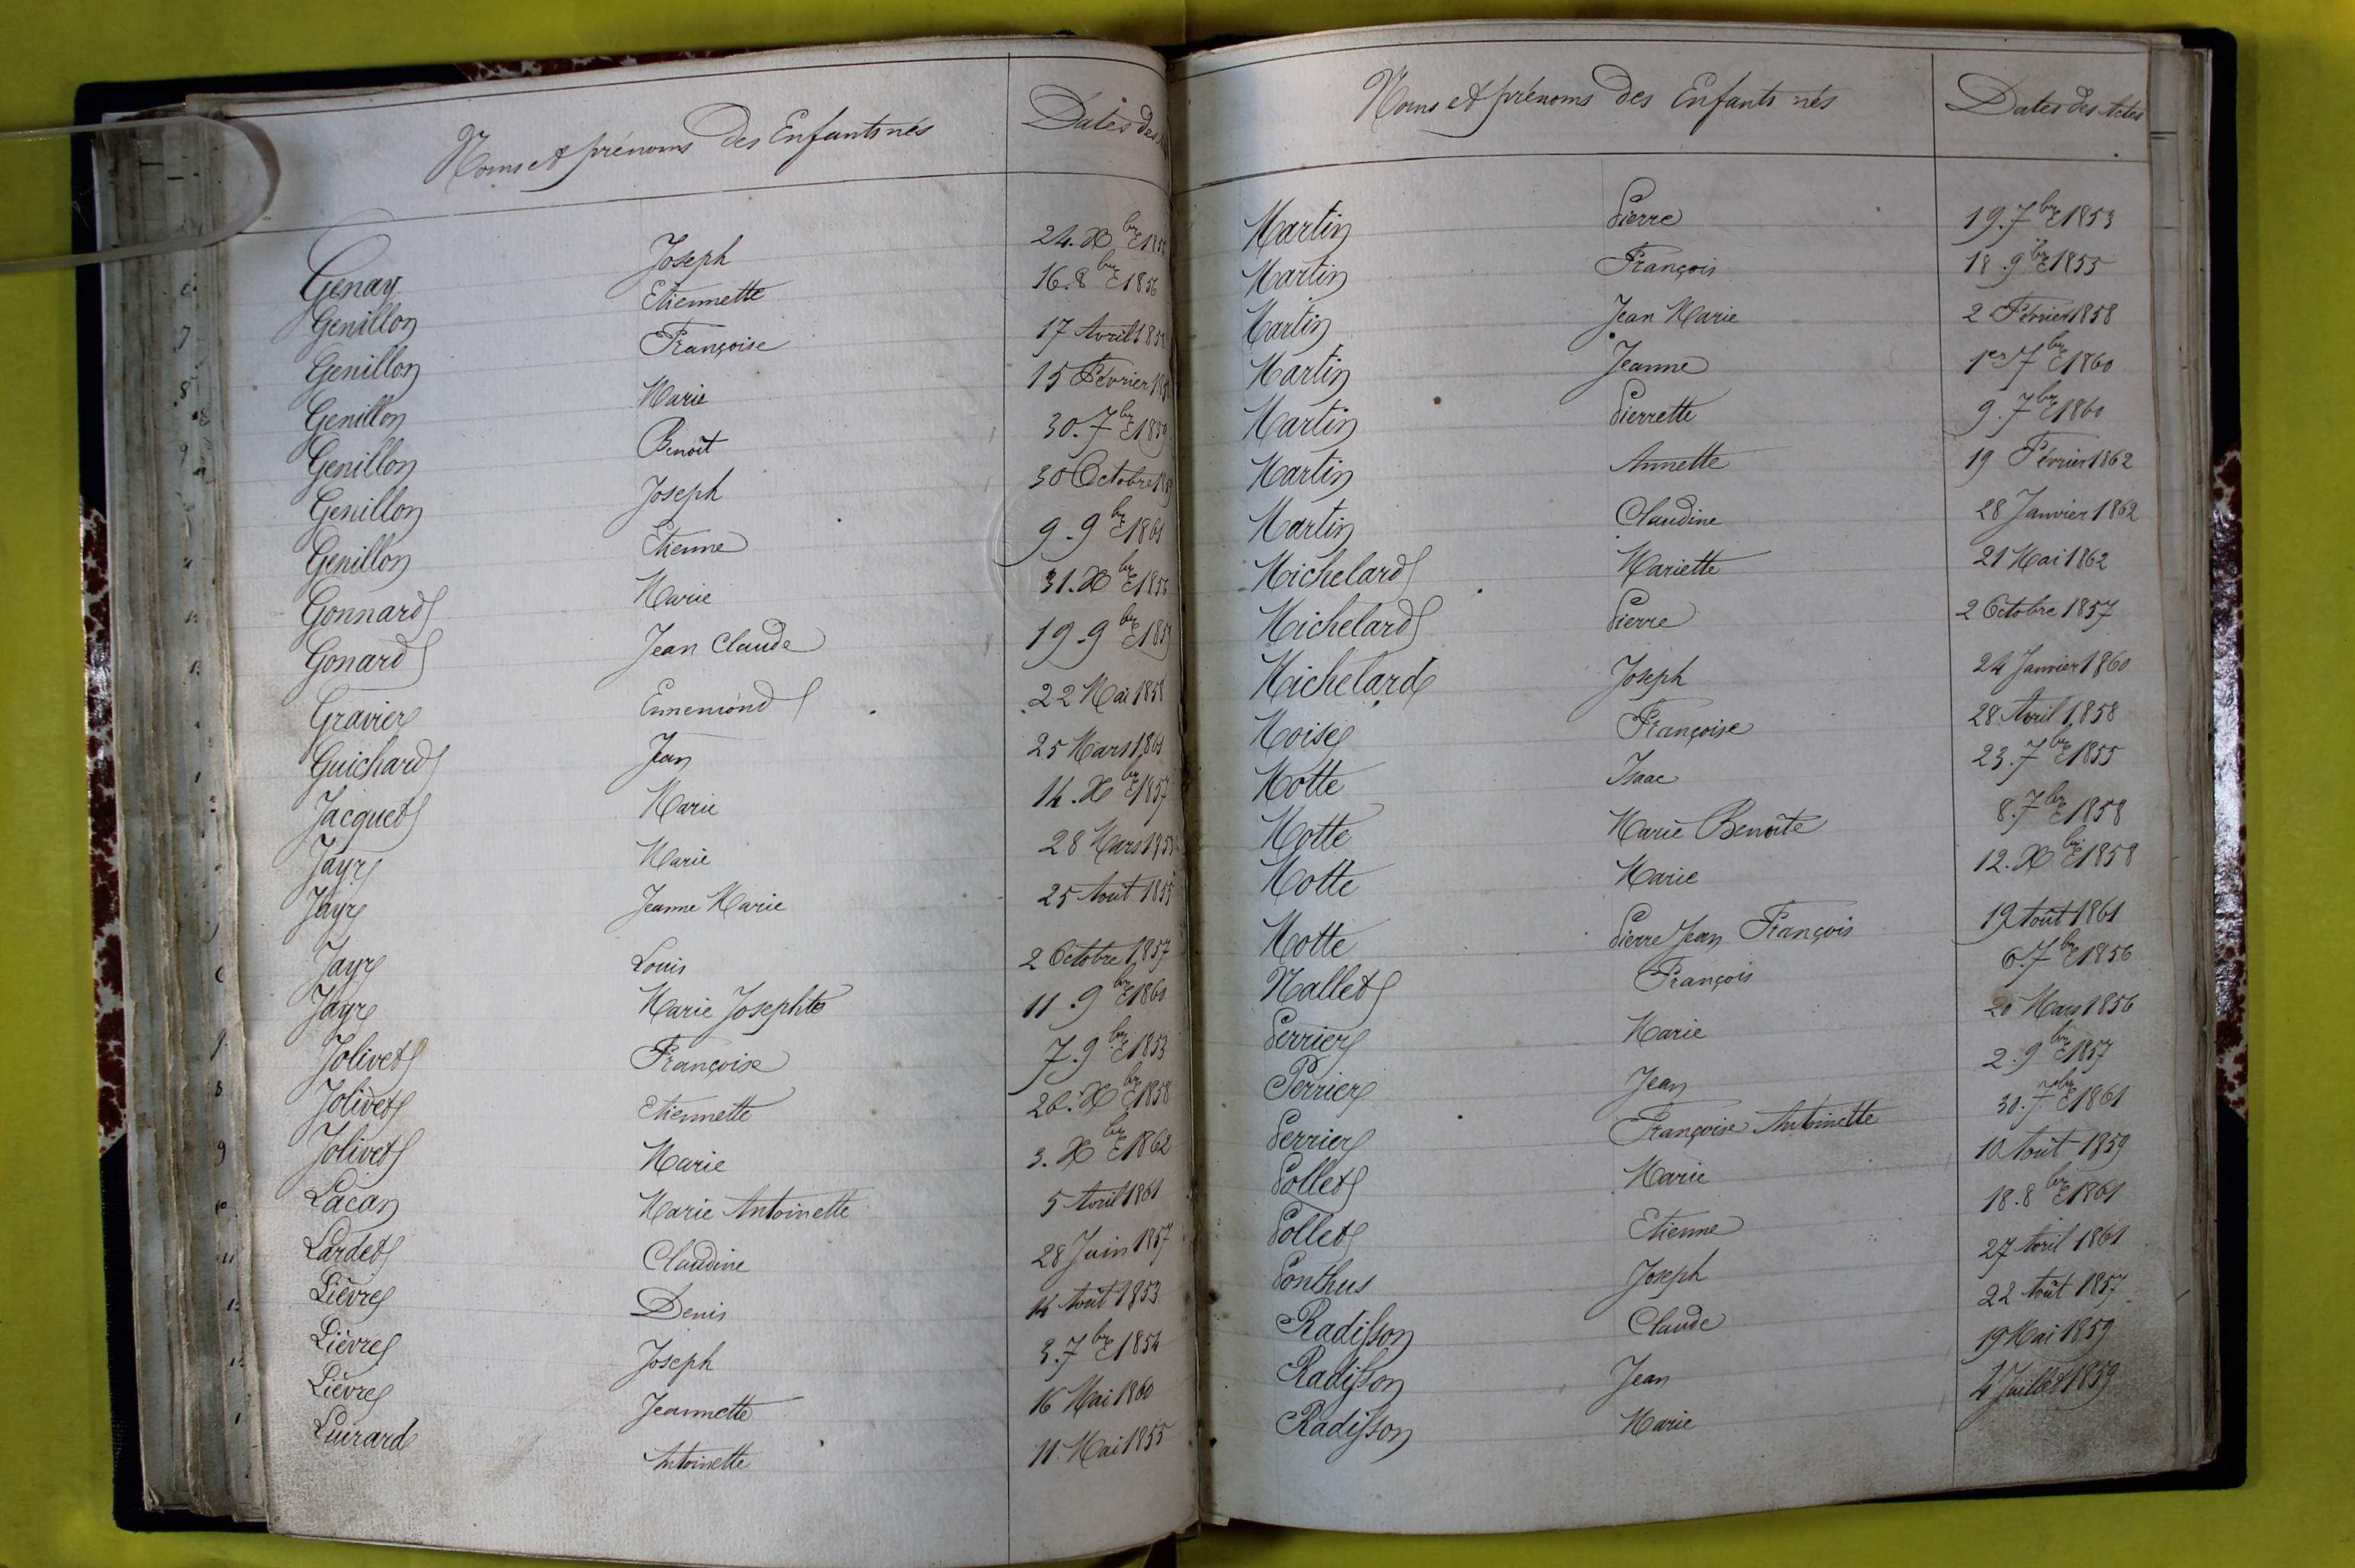 Noms et prénoms des Enfants nés Dates des
Genay Joseph 24. Xbre
Genillon Etiennette 16.8bre 1856
Genillon Françoise 17 Avril
Genillon Marie 15 Février
Genillon Benoît 30.7bre 1859
Genillon Joseph 30 Octobre
Genillon Etienne 9.9bre 1861
Gonnard Marie 31.Xbre 1856
Gonard Jean Claude 19.9bre 1859
Gravier Ennemond 22 Mai 1858
Guichard Jean 25 Mars 1861
Jacquet Marie 14.Xbre 1857
Jayr Marie 28 Mars
Jayr Jeanne Marie 25 Août 1855
Jayr Louis 2 Octobre 1857
Jayr Marie Josephte 11.9bre 1860
Jolivet Françoise 7.9bre 1853
Jolivet Etiennette 26.Xbre 1858
Jolivet Marie 3.Xbre 1862
Lacan Marie Antoinette 5 Avril 1861
Lardet Claudine 28 Juin 1857
Lièvre Denis 14 Août 1853
Lièvre Joseph 3.7bre 1854
Lièvre Jeannette 16 Mai 1860
Luirard Antoinette 11. Mai 1855
Noms et prénoms des Enfants nés Dates des Actes
Martin Pierre 19.7bre 1853
Martin François 18.9bre 1855
Martin Jean Marie 2 Février 1858
Martin Jeanne 1er 7bre 1860
Martin Pierrette 9.7bre 1860
Martin Annette 19 Février 1862
Martin Claudine 28 Janvier 1862
Michelard Mariette 21 Mai 1862
Michelard Pierre 2 Octobre 1857
Michelard Joseph 24 Janvier 1860
Moise Françoise 28 Avril 1858
Motte Isaac 23.7bre 1855
Motte Marie Benoîte 8.7bre 1858
Motte Marie 12.Xbre 1858
Motte Pierre Jean François 19 Août 1861
Nallet François 6.7bre 1856
Perrier Marie 20 Mars 1856
Perrier Jean 2.9bre 1857
Perrier Françoise Antoinette 30.7bre 1861
Pollet Marie 10 Août 1859
Pollet Etienne 18.8bre 1861
Ponthus Joseph 27 Avril 1861
Radisson Claude 22 Août 1857
Radisson Jean 19 Mai 1859
Radisson Marie 4 Juillet 1859